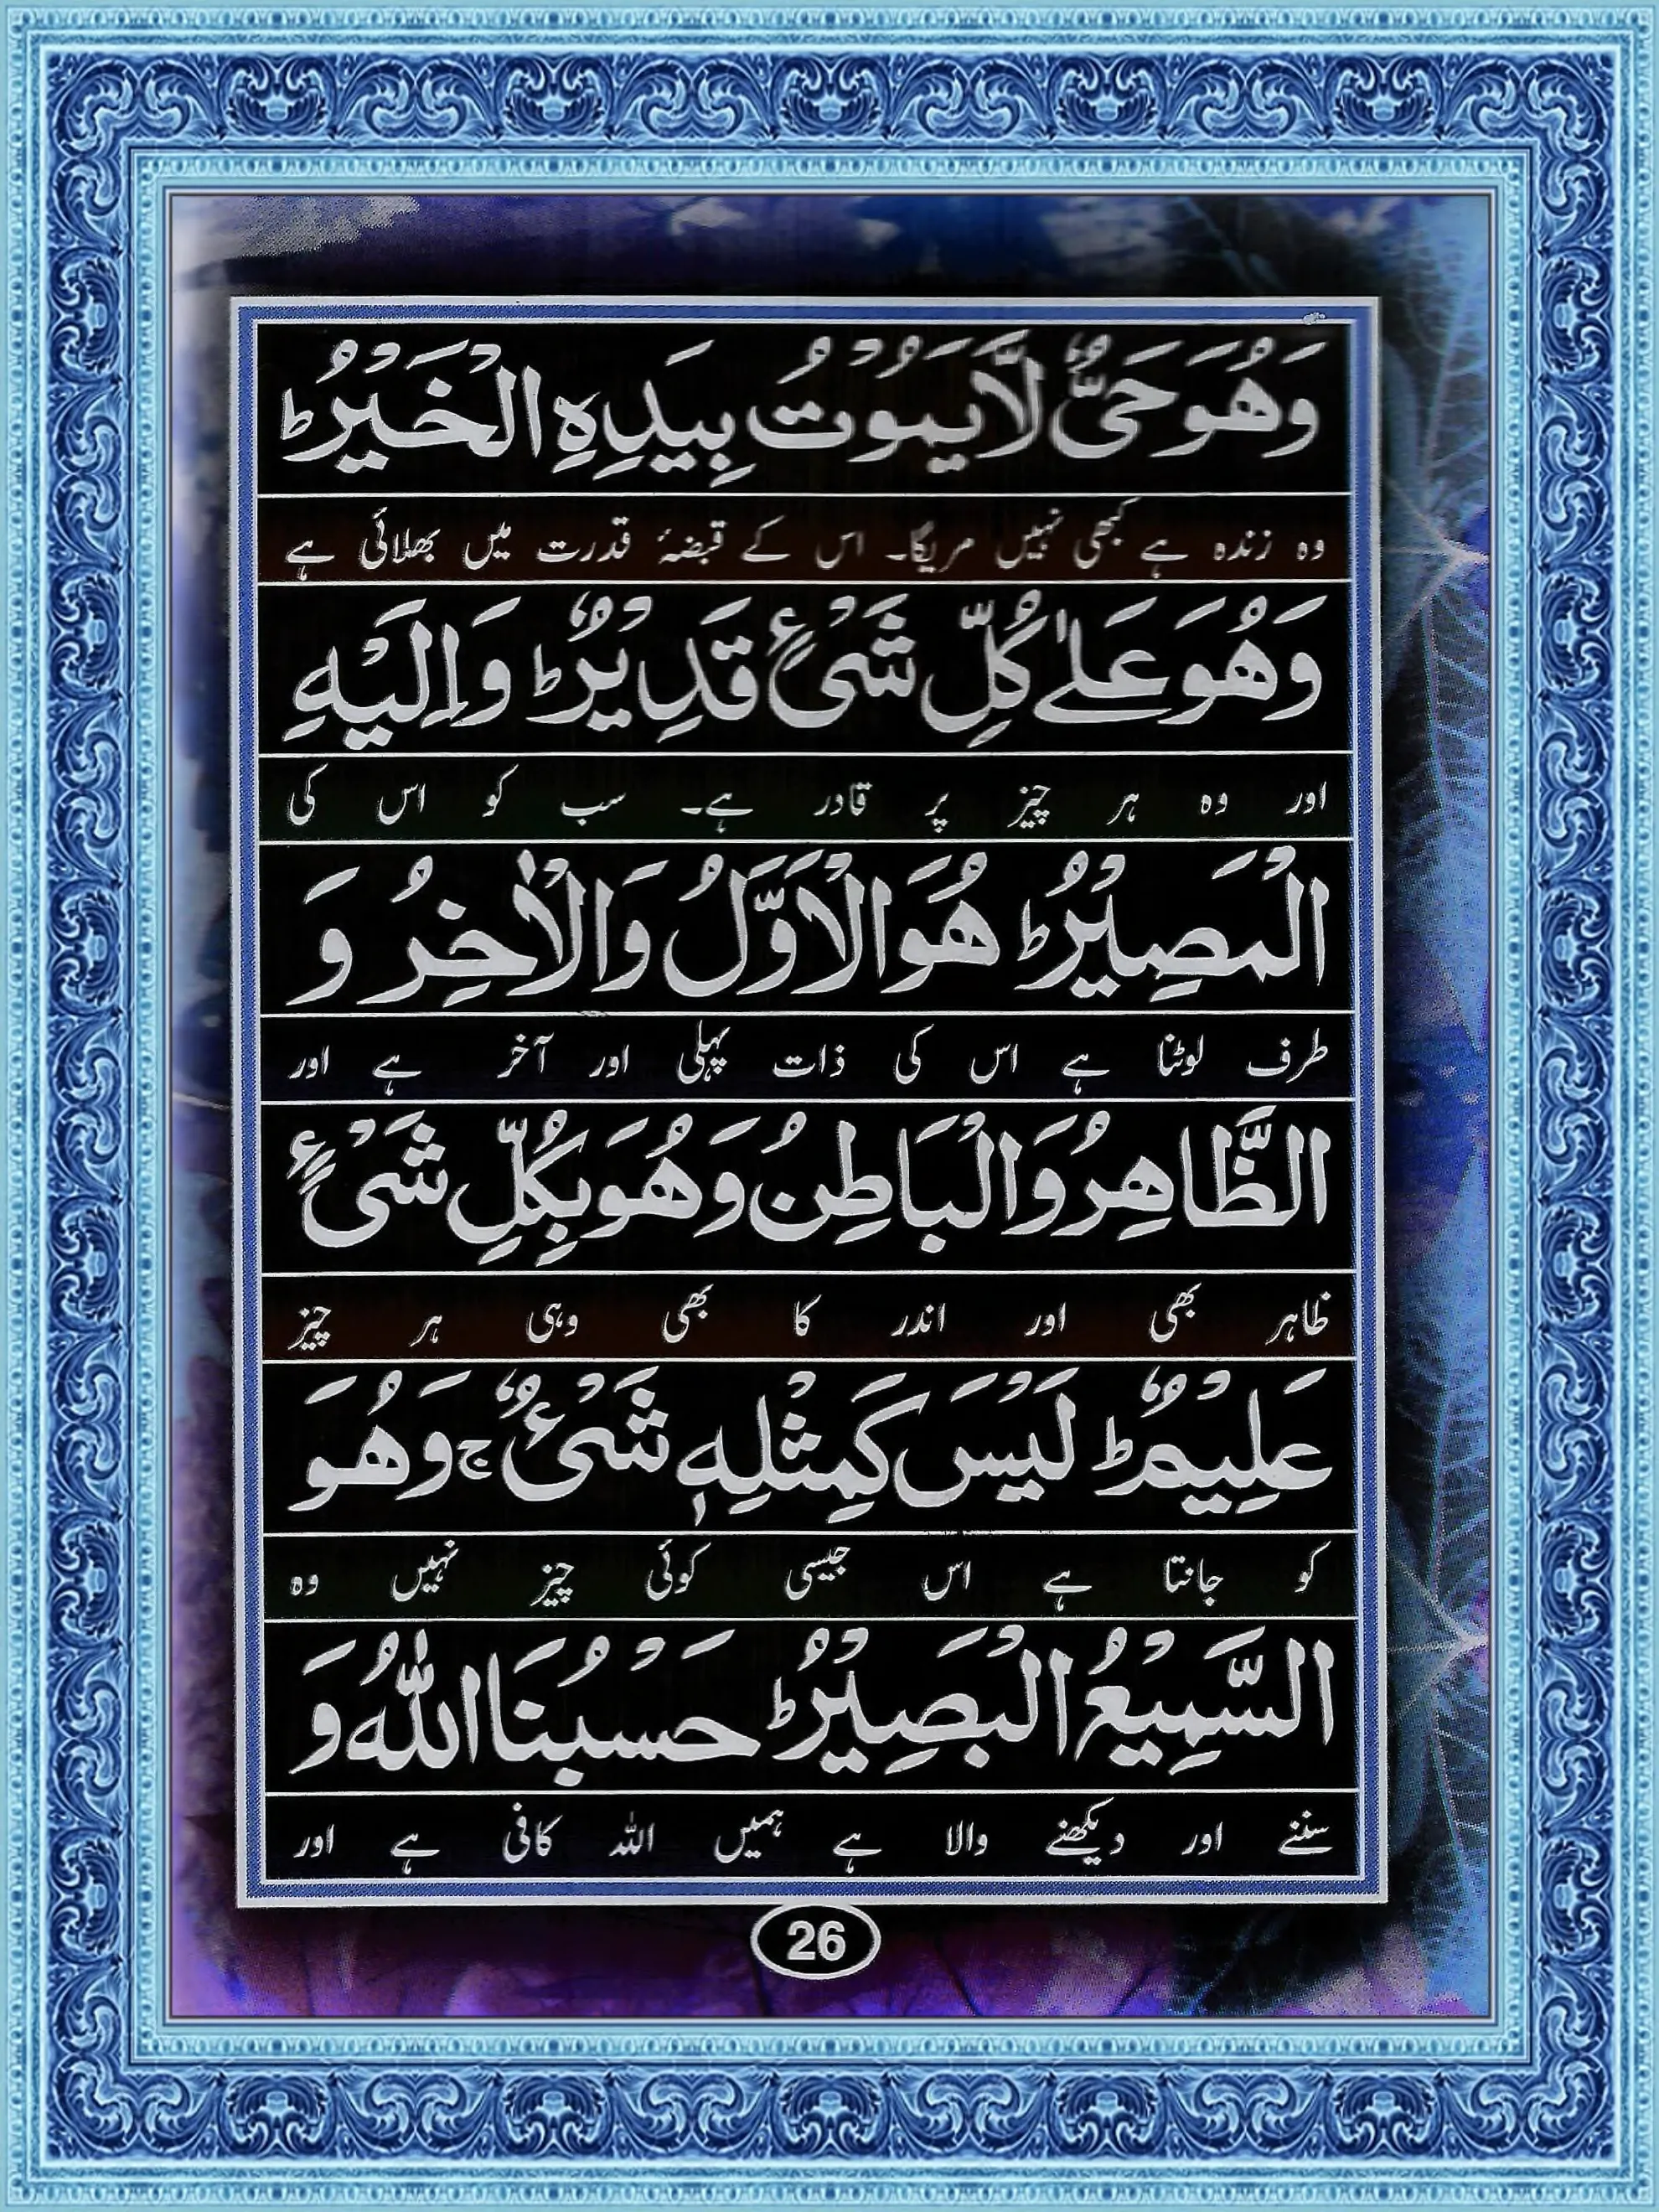 وَهُوَ حَیٌّ لَّا یَمُوْتُ بِیَدِهِ الْخَیْرُ ؕ
وہ زندہ ہے کبھی نہیں مریگا۔ اس کے قبضۂ قدرت میں بھلائی ہے
وَهُوَ عَلٰے کُلِّ شَیْءٍ قَدِیْرٌ ؕ وَ اِلَیْهِ
اور وہ ہر چیز پر قادر ہے۔ سب کو اس کی
الْمَصِیْرُ ؕ هُوَ الْاَوَّلُ وَالْاٰخِرُ وَ
طرف لوٹنا ہے اس کی ذات پہلی اور آخر ہے اور
الظَّاهِرُ وَالْبَاطِنُ وَهُوَ بِکُلِّ شَیْءٍ
ظاہر بھی اور اندر کا بھی وہی ہر چیز
عَلِیْمٌ ؕ لَیْسَ کَمِثْلِهٖ شَیْءٌ ج وَهُوَ
کو جانتا ہے اس جیسی کوئی چیز نہیں وہ
السَّمِیْعُ الْبَصِیْرُ ؕ حَسْبُنَا اللّٰهُ وَ
سننے اور دیکھنے والا ہے ہمیں اللہ کافی ہے اور
26